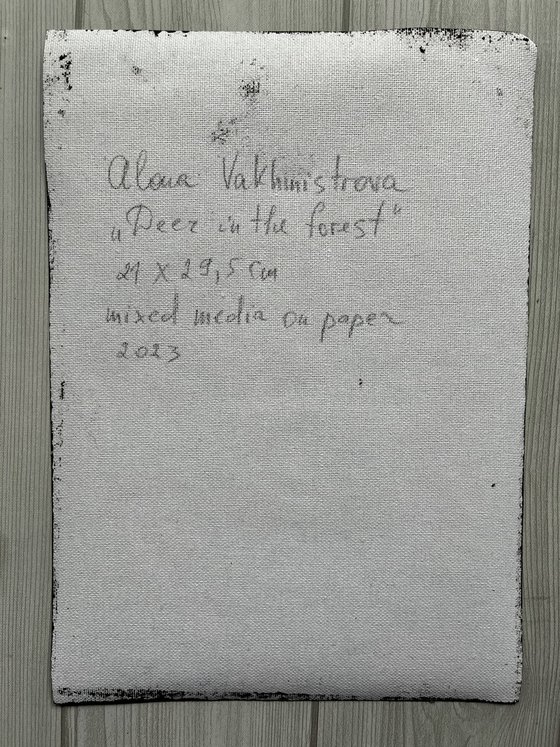 Alona Vakhmistrova
„Deer in the forest“
21 x 29,5 cm
mixed media on paper
2023